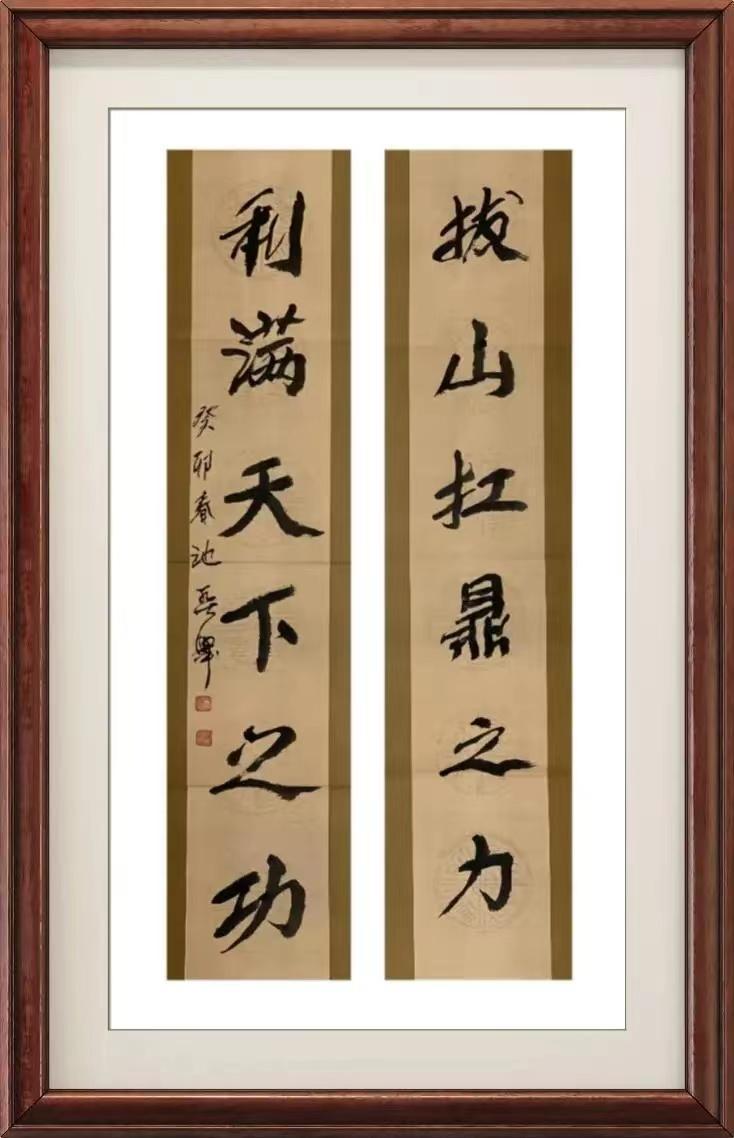 拔山扛鼎之力
利满天下之功
癸卯春池